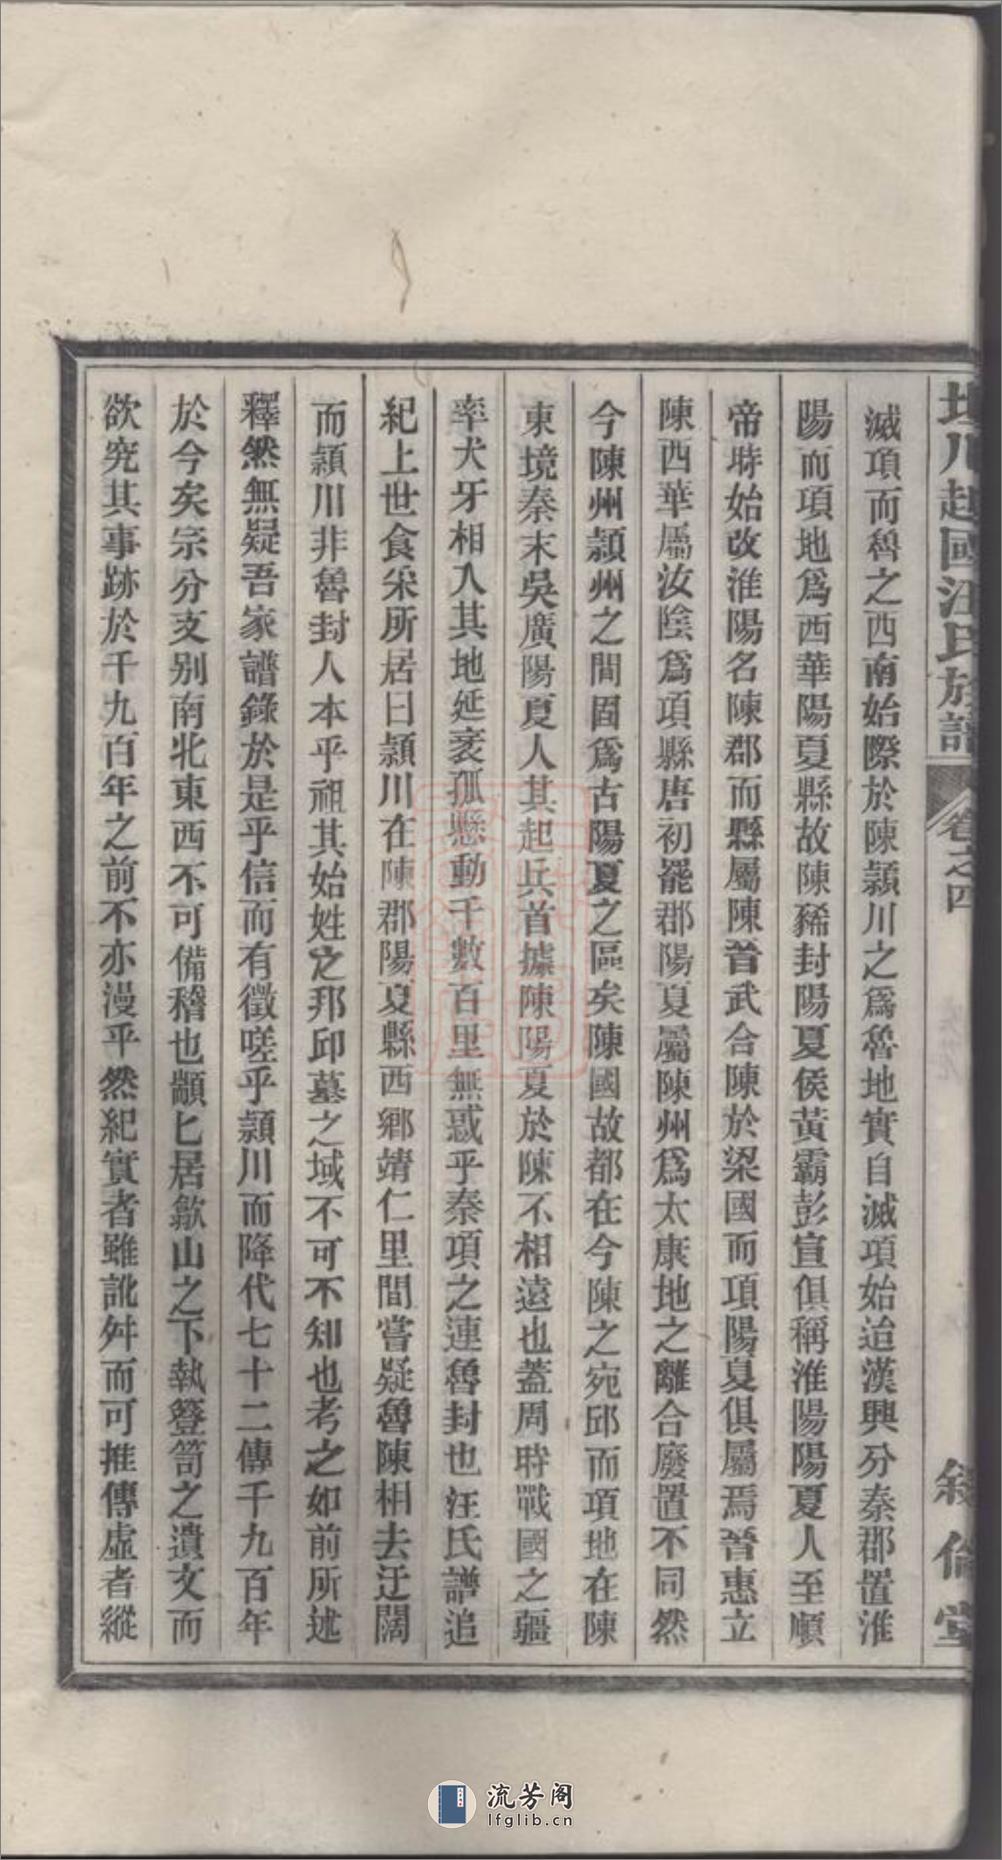 坦川越國汪氏族譜 卷之四 敘倫堂
滅項而魯之西南始際於陳潁川之爲魯地實自滅項始迨漢興分秦郡置淮
陽而項地爲西華陽夏縣故陳豨封陽夏侯黃霸彭宣俱稱淮陽陽夏人至順
帝時始改淮陽名陳郡而縣屬陳晉武合陳於梁國而項陽夏俱屬焉晉惠立
陳西華屬汝陰爲項縣唐初罷郡陽夏屬陳州爲太康地之離合廢置不同然
今陳州潁州之間固爲古陽夏之區矣陳國故都在今陳之宛邱而項地在陳
東境秦末吳廣陽夏人其起兵首據陳陽夏於陳不相遠也蓋周時戰國之疆
率犬牙相入其地延袤孤懸動千數百里無惑乎秦項之連魯封也汪氏譜追
紀上世食采所居曰潁川在陳郡陽夏縣西鄉靖仁里間嘗疑魯陳相去迂闊
而潁川非魯封人本乎祖其始姓之邦邱墓之域不可不知也考之如前所述
釋然無疑吾家譜錄於是乎信而有徵嗟乎潁川而降代七十二傳千九百年
於今矣宗分支别南北東西不可備稽也顓匕居歙山之下執簦笥之遺文而
欲究其事跡於千九百年之前不亦漫乎然紀實者雖訛舛而可推傳虛者縱
流芳阁
lfglib.cn